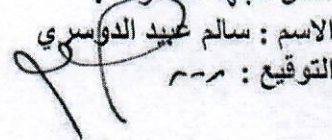 الاسم : سالم عبيد الدوسري
التوقيع :